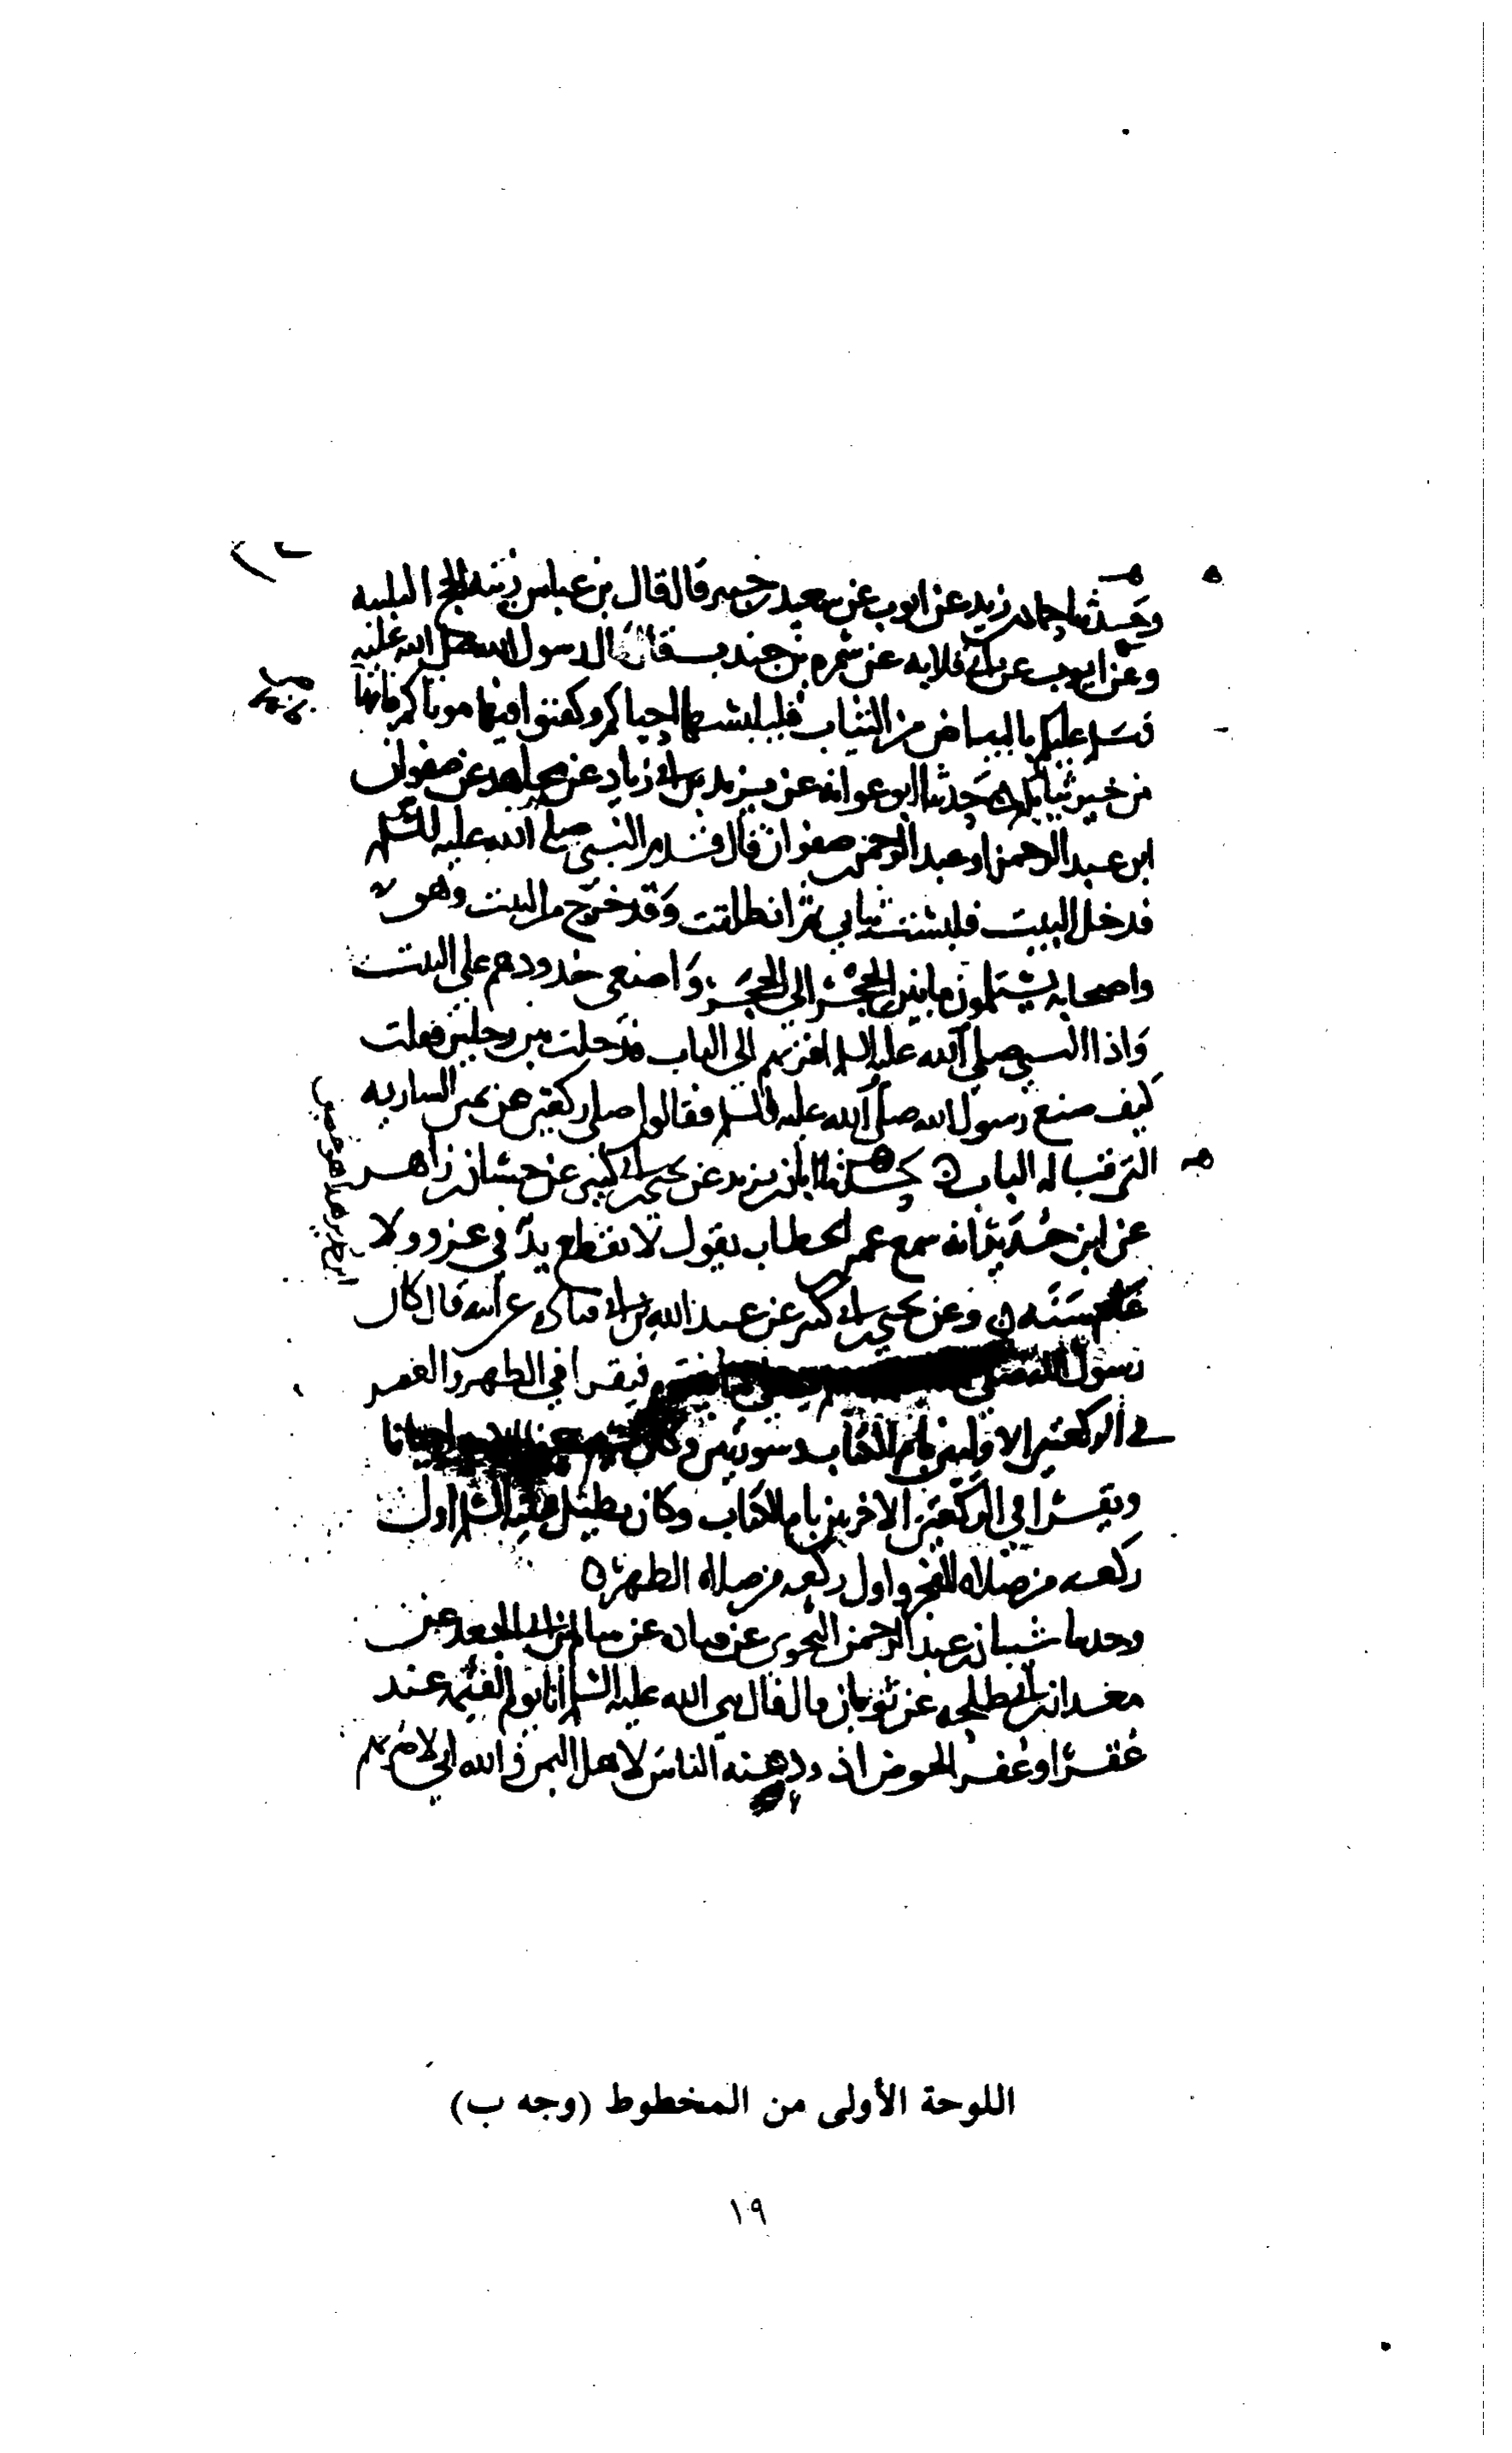 وحدثنا حماد بن زيد عن ايوب عن سعيد بن جبير قال قال بن عباس زينه الحج التلبيه
وعن ايوب عن ابي قلابه عن سمره بن جندب قال قال رسول الله صلى الله عليه
وسلم عليكم بالبياض من الثياب فليلبسها احياكم وكفنوا فيها موتاكم فانها
من خير ثيابكم حدثنا ابو عوانه عن يزيد بن ابي زياد عن مجاهد عن صفوان
ابن عبد الرحمن او عبد الرحمن بن صفوان قال قدم النبي صلى الله عليه السلم
فدخل البيت فلبست ثيابي ثم انطلقت وقد خرج من البيت وهو
واصحابه يستلمون ما بين الحجر الى الحجر واضعي خدودهم على البيت
واذا النبي صلى الله عليه السلم اقربهم الى الباب فدخلت بين رجلين فقلت
كيف صنع رسول الله صلى الله عليه السلم فقالوا صلى ركعتين عن الساريه
التي قباله الباب حدثنا ابان بن يزيد عن يحيى بن ابي كثير عن حسان بن زاهر
عن ابن حدير انه سمع عمر بن الخطاب يقول لا تقطع يد في عزو ولا
عام سنه وعن يحيى بن ابي كثير عن عبد الله بن ابي قتاده عن ابيه قال كان
رسول الله صلى فيقرا في الظهر والعصر
في الركعتين الاوليين بام الكتاب وسورتين وكان احيانا
ويقرا في الركعتين الاخريين بام الكتاب وكان يطيل عليه السلم اول
ركعه من صلاه الفجر واول ركعه من صلاه الظهر
وحدثنا شيبان بن عبد الرحمن النحوي عن قتاده عن سالم بن ابي الجعد عن
معدان بن ابي طلحه عن ثوبان قال قال نبي الله عليه السلم انا يوم القيمه عند
عقر او عقر الحوض اذود عنه الناس لاهل اليمن والله اني لاضربهم
اللوحة الأولى من المخطوط (وجه ب)
١٩